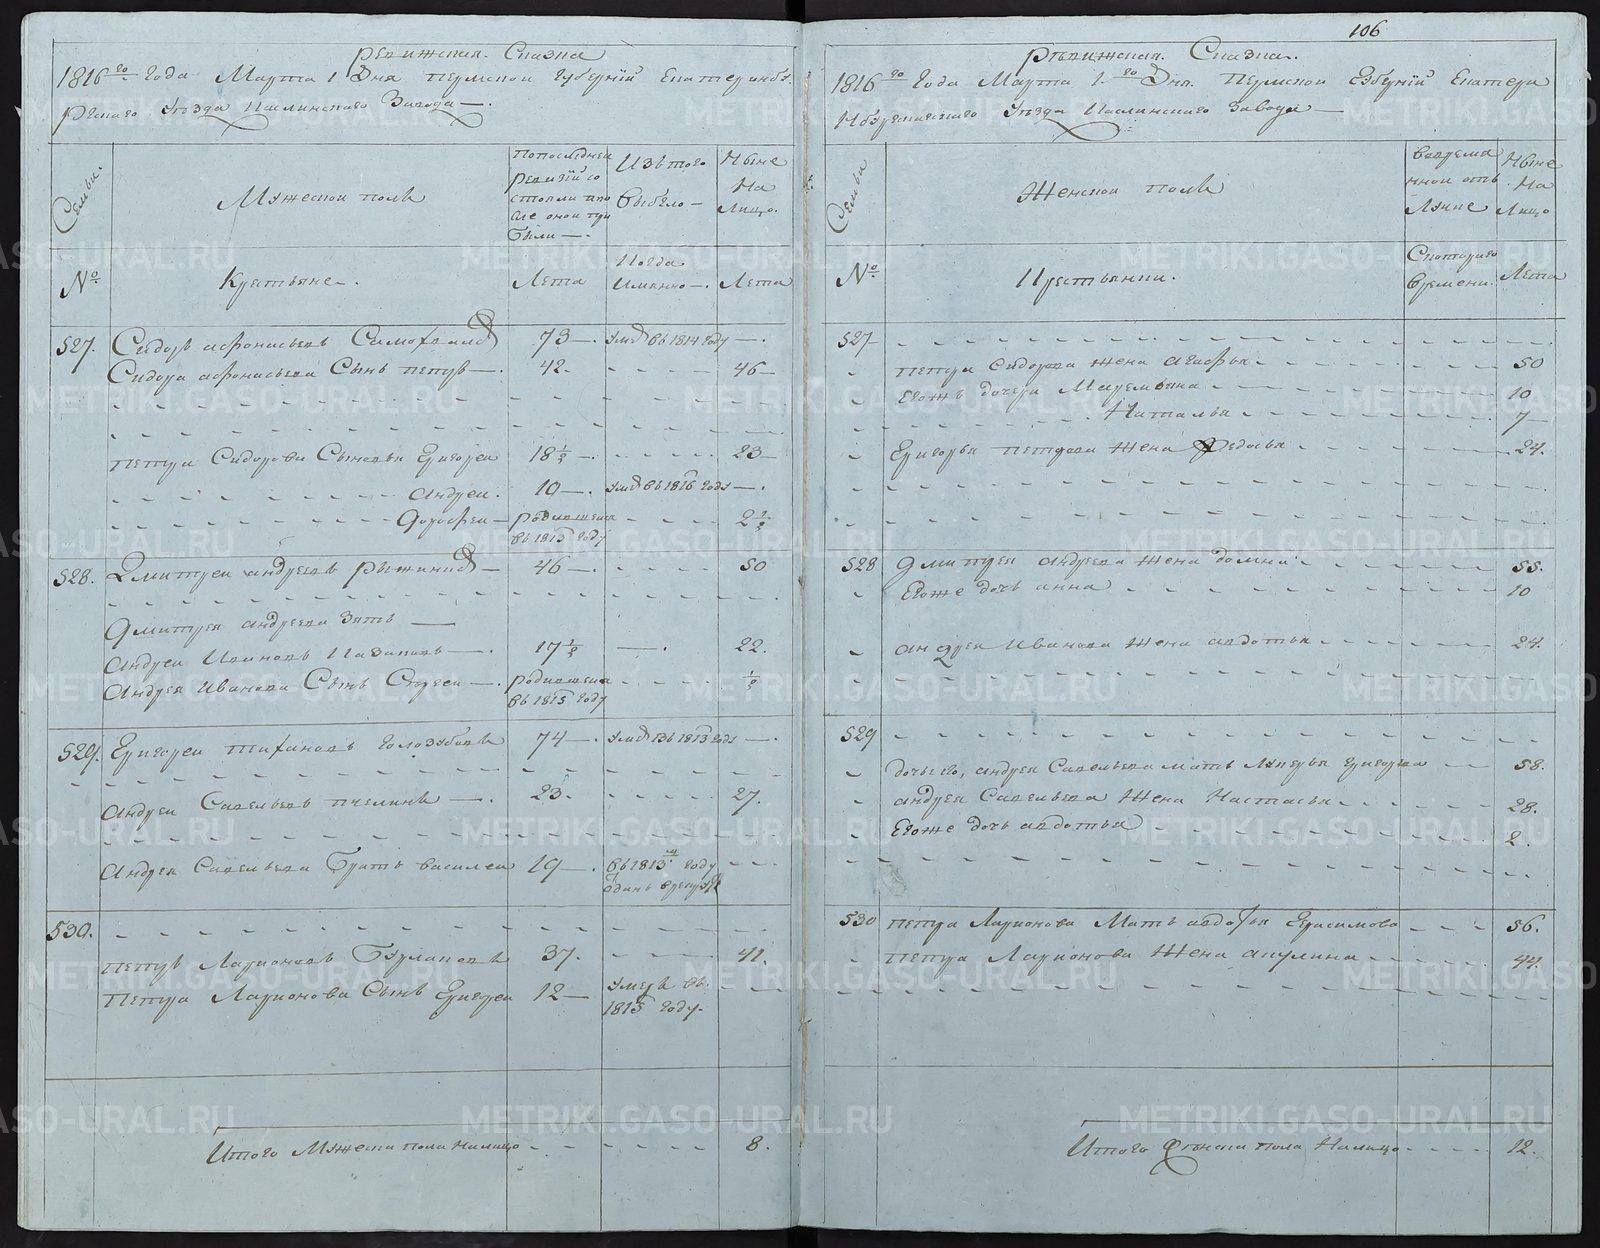 Ревижская. Сказка
1816го Года Марта 1 Дня Пермской Губернiй Екатеринбу
ргскаго Уезда Каслинскаго Завода —.
Семьи.
Мужескои полъ
По последнеи Ревизiй со стояли и после оной при были —.
Изъ того Выбыло —
Ныне На Лицо.
№
Крестьяне —.
Лета
Когда Имянно —.
Лета
527. Сидоръ Афонасьевъ Самохвалов 73 —. умре въ 1814 году —.
Сидора Афонасьева Сынъ Петръ —. 42. - - - - 46 —
Петра Сидорова Сыновья Григореи 18 1/2 —. - - - - 23 —
Андреи. 10 —. умре въ 1816 году —.
Дорофеи — родившеися въ 1813 году - - - 2 1/2
528. Дмитреи Андреевъ Рыжиков — 46 —. - - - - 50
Дмитрея Андреева Зять —
Андреи Ивановъ Казаковъ —. 17 1/2 —. 22.
Андрея Иванова Сынъ Сергеи —. родившеися въ 1815 году - - - - 1/2
529. Григореи Тихановъ Голозубовъ 74 —. умре въ 1813 году —.
Андреи Савельевъ Пчелинъ —. 23. - - - - 27.
Андрея Савельева Братъ Василеи 19 —. въ 1813м году отданъ в рекруты - - -
530.
Петръ Ларионовъ Бурлаковъ 37. - - - - 41.
Петра Ларионова Сынъ Григореи 12 — умеръ въ. 1815 году.
Итого Мужеска пола налицо - - - - - 8.
106
Ревижская. Сказка.
1816го Года Марта 1.го Дня. Пермской Губернiй Екатери
нбургскаго Уезда Каслинскаго Завода —
Семьи
Женскои полъ
Вовремянной отлучке
Ныне На Лицо
№
Крестьянки.
Скоторого Времени.
Лета
527
Петра Сидорова жена Агафья - - - - 50
Егожъ дочери Маремьяна - - - - 10
Наталья - - - - 7 —
Григорья Петрова Жена Федосья - - - - 24.
528 Дмитрея Андреева Жена домна - - - - 55.
Егоже дочь Анна - - - - 10
Андрея Иванова Жена Авдотья - - - - 24.
529
дочь его, Андрея Савельева мать Лукерья Григорьева - - 58.
Андрея Савельева Жена Настасья - - - - 28.
Егоже дочь Авдотья - - - - 2.
530 Петра Ларионова Мать Авдотья Герасимова - - - 56.
Петра Ларионова Жена Акулина - - - - 44.
Итого Женска пола Налицо - - - - 12.